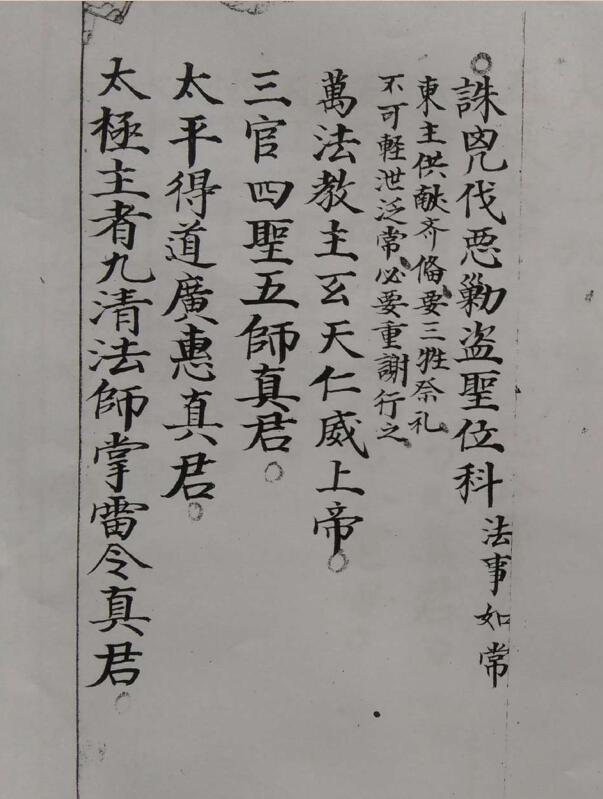 誅兇伐悪勦盗聖位科 法事如常
東主供献齐俻要三牲祭礼
不可軽泄泛常必要重謝行之
萬法教主玄天仁威上帝
三官四聖五師真君
太平得道廣惠真君
太極主者九清法師掌雷令真君